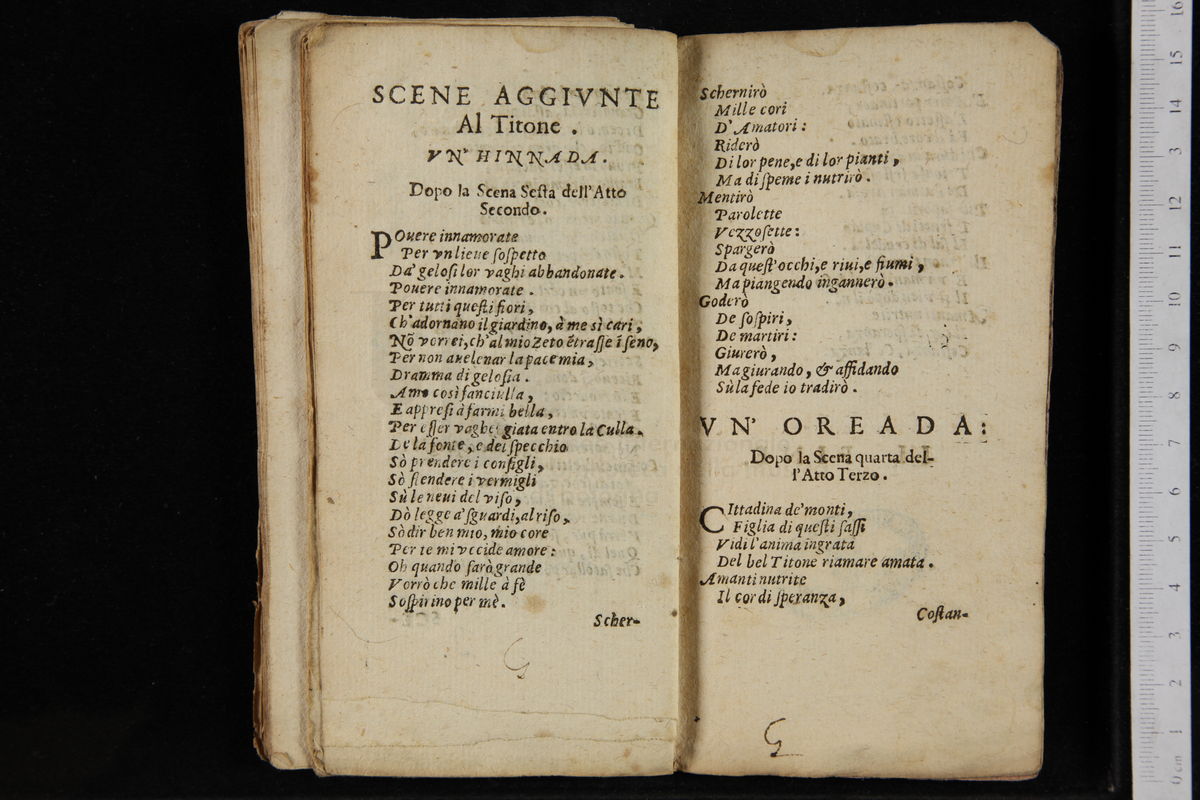 SCENE AGGIVNTE
Al Titone .
VN' HINNADA .
Dopo la Scena Sesta dell'Atto
Secondo .
POuere innamorate
Per vn lieue sospetto
Da' gelosi lor vaghi abbandonate .
Pouere innamorate .
Per tutti questi fiori ,
Ch'adornano il giardino, à me sì cari ,
Nõ vorrei, ch'al mio Zeto ẽtrasse ĩ seno,
Per non auelenar la pace mia ,
Dramma di gelosia .
Amo così fanciulla ,
E appresi à farmi bella ,
Per esser vagheggiata entro la Culla .
De la fonte , e del specchio
Sò prendere i consigli,
Sò stendere i vermigli
Sù le neui del viso ,
Dò legge a'sguardi, al riso ,
Sò dir ben mio, mio core
Per te mi vccide amore :
Oh quando sarò grande
Vorrò che mille à fè
Sospirino per mè .
Scher-
Schernirò
Mille cori
D' Amatori :
Riderò
Di lor pene, e di lor pianti ,
Ma di speme i nutrirò .
Mentirò
Parolette
Vezzosette :
Spargerò
Da quest'occhi, e riui, e fiumi ,
Ma piangendo ingannerò .
Goderò
De sospiri ,
De martiri :
Giurerò ,
Ma giurando , & affidando
Sù la fede io tradirò .
VN' OREADA :
Dopo la Scena quarta del-
l'Atto Terzo .
CIttadina de' monti ,
Figlia di questi sassi
Vidi l'anima ingrata
Del bel Titone riamare amata .
Amanti nutrite
Il cor di speranza ,
Costan-
0 cm 1 2 3 4 5 6 7 8 9 10 11 12 13 14 15 16